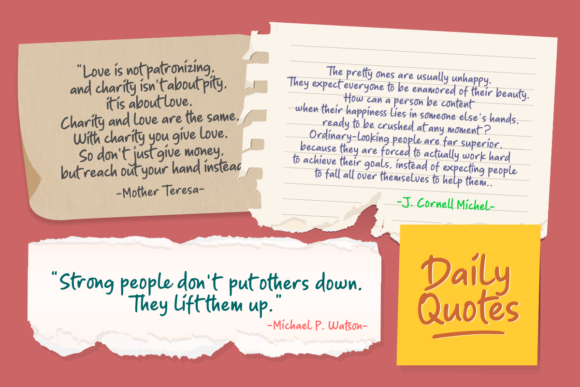 "Love is not patronizing,
and charity isn't about pity,
it is about love.
Charity and love are the same.
With charity you give love.
So don't just give money,
but reach out your hand instead
-Mother Teresa-
The pretty ones are usually unhappy.
They expect everyone to be enamored of their beauty.
How can a person be content
when their happiness lies in someone else's hands,
ready to be crushed at any moment?
Ordinary-looking people are far superior,
because they are forced to actually work hard
to achieve their goals, instead of expecting people
to fall all over themselves to help them..
-J. Cornell Michel-
"Strong people don't put others down.
They lift them up."
-Michael P. Watson-
Daily
Quotes